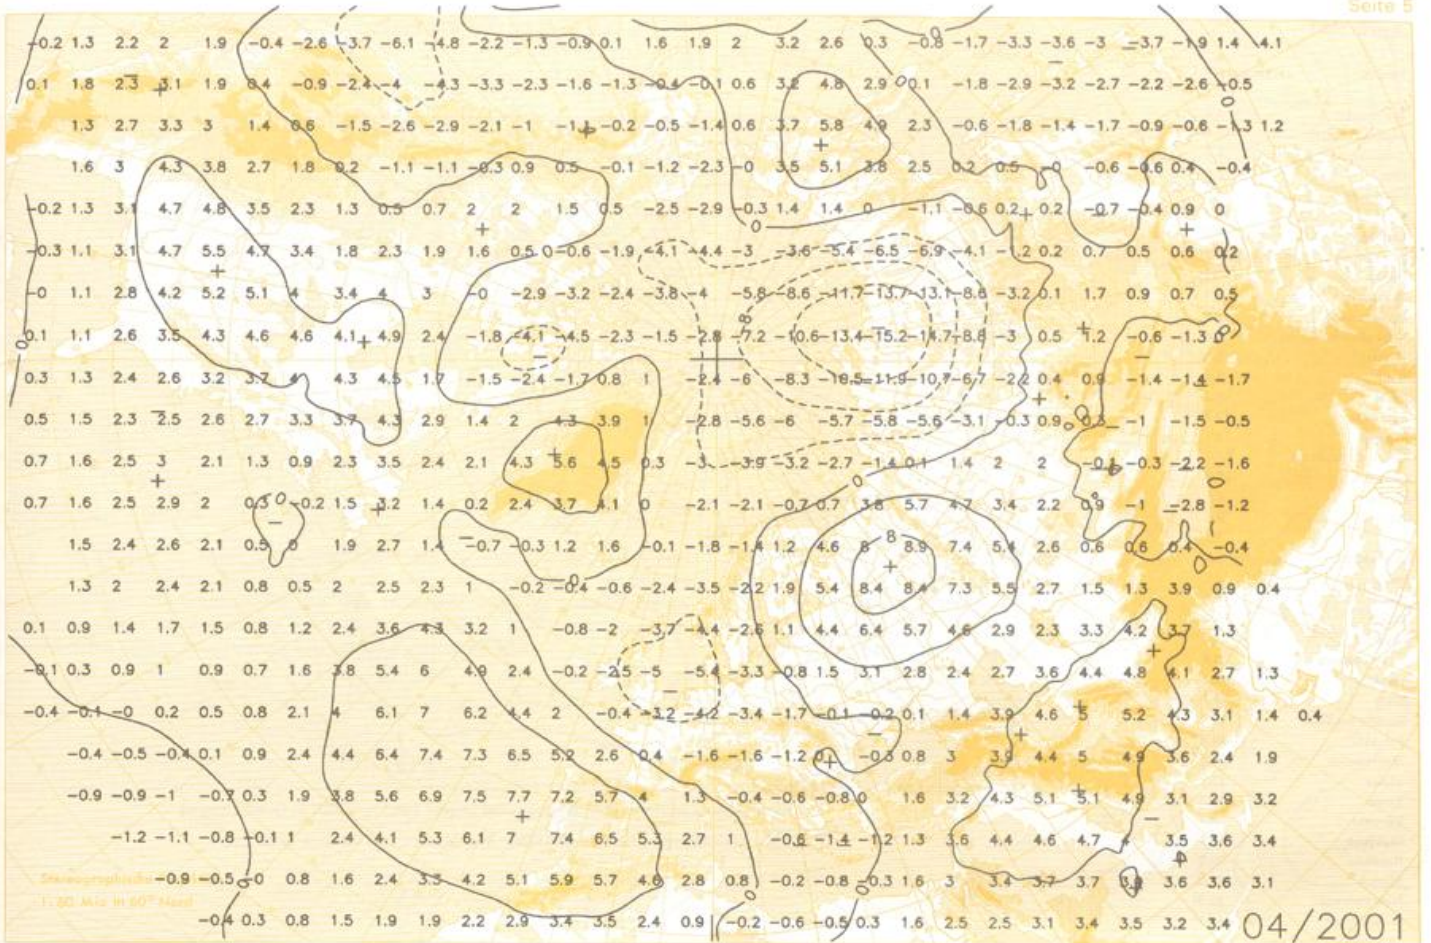 Seite 5
-0.2 1.3 2.2 2 1.9 -0.4 -2.6 -3.7 -6.1 -4.8 -2.2 -1.3 -0.9 0.1 1.6 1.9 2 3.2 2.6 0.3 -0.8 -1.7 -3.3 -3.6 -3 -3.7 -1.9 1.4 4.1
0.1 1.8 2.3 3.1 1.9 0.4 -0.9 -2.4 -4 -4.3 -3.3 -2.3 -1.6 -1.3 -0.4 -0.1 0.6 3.2 4.8 2.9 0.1 -1.8 -2.9 -3.2 -2.7 -2.2 -2.6 -0.5
1.3 2.7 3.3 3 1.4 0.6 -1.5 -2.6 -2.9 -2.1 -1 -0.2 -0.5 -1.4 0.6 3.7 5.8 4.9 2.3 -0.6 -1.8 -1.4 -1.7 -0.9 -0.6 -1.3 1.2
1.6 3 4.3 3.8 2.7 1.8 0.2 -1.1 -1.1 -0.3 0.9 0.5 -0.1 -1.2 -2.3 -0 3.5 5.1 3.8 2.5 0.2 0.5 -0 -0.6 -0.6 0.4 -0.4
-0.2 1.3 3.1 4.7 4.8 3.5 2.3 1.3 0.5 0.7 2 2 1.5 0.5 -2.5 -2.9 -0.3 1.4 1.4 0 -1.1 -0.6 0.2 0.2 -0.7 -0.4 0.9 0
-0.3 1.1 3.1 4.7 5.5 4.7 3.4 1.8 2.3 1.9 1.6 0.5 0 -0.6 -1.9 -4.1 -4.4 -3 -3.6 -5.4 -6.5 -6.9 -4.1 -1.2 0.2 0.7 0.5 0.6 0.2
-0 1.1 2.8 4.2 5.2 5.1 4 3.4 4 3 -0 -2.9 -3.2 -2.4 -3.8 -4 -5.8 -8.6 -11.7 -13.7 -13.1 -8.6 -3.2 0.1 1.7 0.9 0.7 0.5
0.1 1.1 2.6 3.5 4.3 4.6 4.6 4.1 4.9 2.4 -1.8 -4.1 -4.5 -2.3 -1.5 -2.8 -7.2 -10.6 -13.4 -15.2 -14.7 -8.8 -3 0.5 1.2 -0.6 -1.3 0
0.3 1.3 2.4 2.6 3.2 3.7 4 4.3 4.5 1.7 -1.5 -2.4 -1.7 0.8 1 -2.4 -6 -8.3 -10.5 -11.9 -10.7 -6.7 -2.2 0.4 0.9 -1.4 -1.4 -1.7
0.5 1.5 2.3 2.5 2.6 2.7 3.3 3.7 4.3 2.9 1.4 2 4.3 3.9 1 -2.8 -5.6 -6 -5.7 -5.8 -5.6 -3.1 -0.3 0.9 0.3 -1 -1.5 -0.5
0.7 1.6 2.5 3 2.1 1.3 0.9 2.3 3.5 2.4 2.1 4.3 5.6 4.5 0.3 -3 -3.9 -3.2 -2.7 -1.4 0.1 1.4 2 2 -0.1 -0.3 -2.2 -1.6
0.7 1.6 2.5 2.9 2 0.3 -0.2 1.5 3.2 1.4 0.2 2.4 3.7 4.1 0 -2.1 -2.1 -0.7 0.7 3.8 5.7 4.7 3.4 2.2 0.9 -1 -2.8 -1.2
1.5 2.4 2.6 2.1 0.5 0 1.9 2.7 1.4 -0.7 -0.3 1.2 1.6 -0.1 -1.8 -1.4 1.2 4.6 8 8.9 7.4 5.4 2.6 0.6 0.6 0.4 -0.4
1.3 2 2.4 2.1 0.8 0.5 2 2.5 2.3 1 -0.2 -0.4 -0.6 -2.4 -3.5 -2.2 1.9 5.4 8.4 8.4 7.3 5.5 2.7 1.5 1.3 3.9 0.9 0.4
0.1 0.9 1.4 1.7 1.5 0.8 1.2 2.4 3.6 4.3 3.2 1 -0.8 -2 -3.7 -4.4 -2.6 1.1 4.4 6.4 5.7 4.6 2.9 2.3 3.3 4.2 3.7 1.3
-0.1 0.3 0.9 1 0.9 0.7 1.6 3.8 5.4 6 4.9 2.4 -0.2 -2.5 -5 -5.4 -3.3 -0.8 1.5 3.1 2.8 2.4 2.7 3.6 4.4 4.8 4.1 2.7 1.3
-0.4 -0.1 -0 0.2 0.5 0.8 2.1 4 6.1 7 6.2 4.4 2 -0.4 -3.2 -4.2 -3.4 -1.7 -0.1 -0.2 0.1 1.4 3.9 4.6 5 5.2 4.3 3.1 1.4 0.4
-0.4 -0.5 -0.4 0.1 0.9 2.4 4.4 6.4 7.4 7.3 6.5 5.2 2.6 0.4 -1.6 -1.6 -1.2 -0.3 0.8 3 3.9 4.4 5 4.9 3.6 2.4 1.9
-0.9 -0.9 -1 -0.7 0.3 1.9 3.8 5.6 6.9 7.5 7.7 7.2 5.7 4 1.3 -0.4 -0.6 -0.8 0 1.6 3.2 4.3 5.1 5.1 4.9 3.1 2.9 3.2
-1.2 -1.1 -0.8 -0.1 1 2.4 4.1 5.3 6.1 7 7.4 6.5 5.3 2.7 1 -0.6 -1.4 -1.2 1.3 3.6 4.4 4.6 4.7 4 3.5 3.6 3.4
-0.9 -0.5 -0 0.8 1.6 2.4 3.3 4.2 5.1 5.9 5.7 4.6 2.8 0.8 -0.2 -0.8 -0.3 1.6 3 3.4 3.7 3.7 3.6 3.6 3.1
1: 60 Mio in 60° Nord
-0.4 0.3 0.8 1.5 1.9 1.9 2.2 2.9 3.4 3.5 2.4 0.9 -0.2 -0.6 -0.5 0.3 1.6 2.5 2.5 3.1 3.4 3.5 3.2 3.4 04/2001